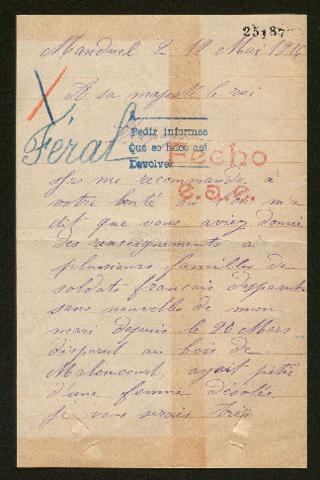 25187
Manduel le 18 Mai 1916
A sa majesté le roi
Féral
Pedir informes
Que se hace así
Devolver
Fecho
e.a.e.
Je me recommande à
votre bonté on m'a
dit que vous aviez donné
des renseignements à
plusieurs familles de
soldats français disparut
sans nouvelles de mon
mari depuis le 20 Mars
disparut au bois de
Malencourt, ayait pitié
d'une femme désolée
je vous serais très